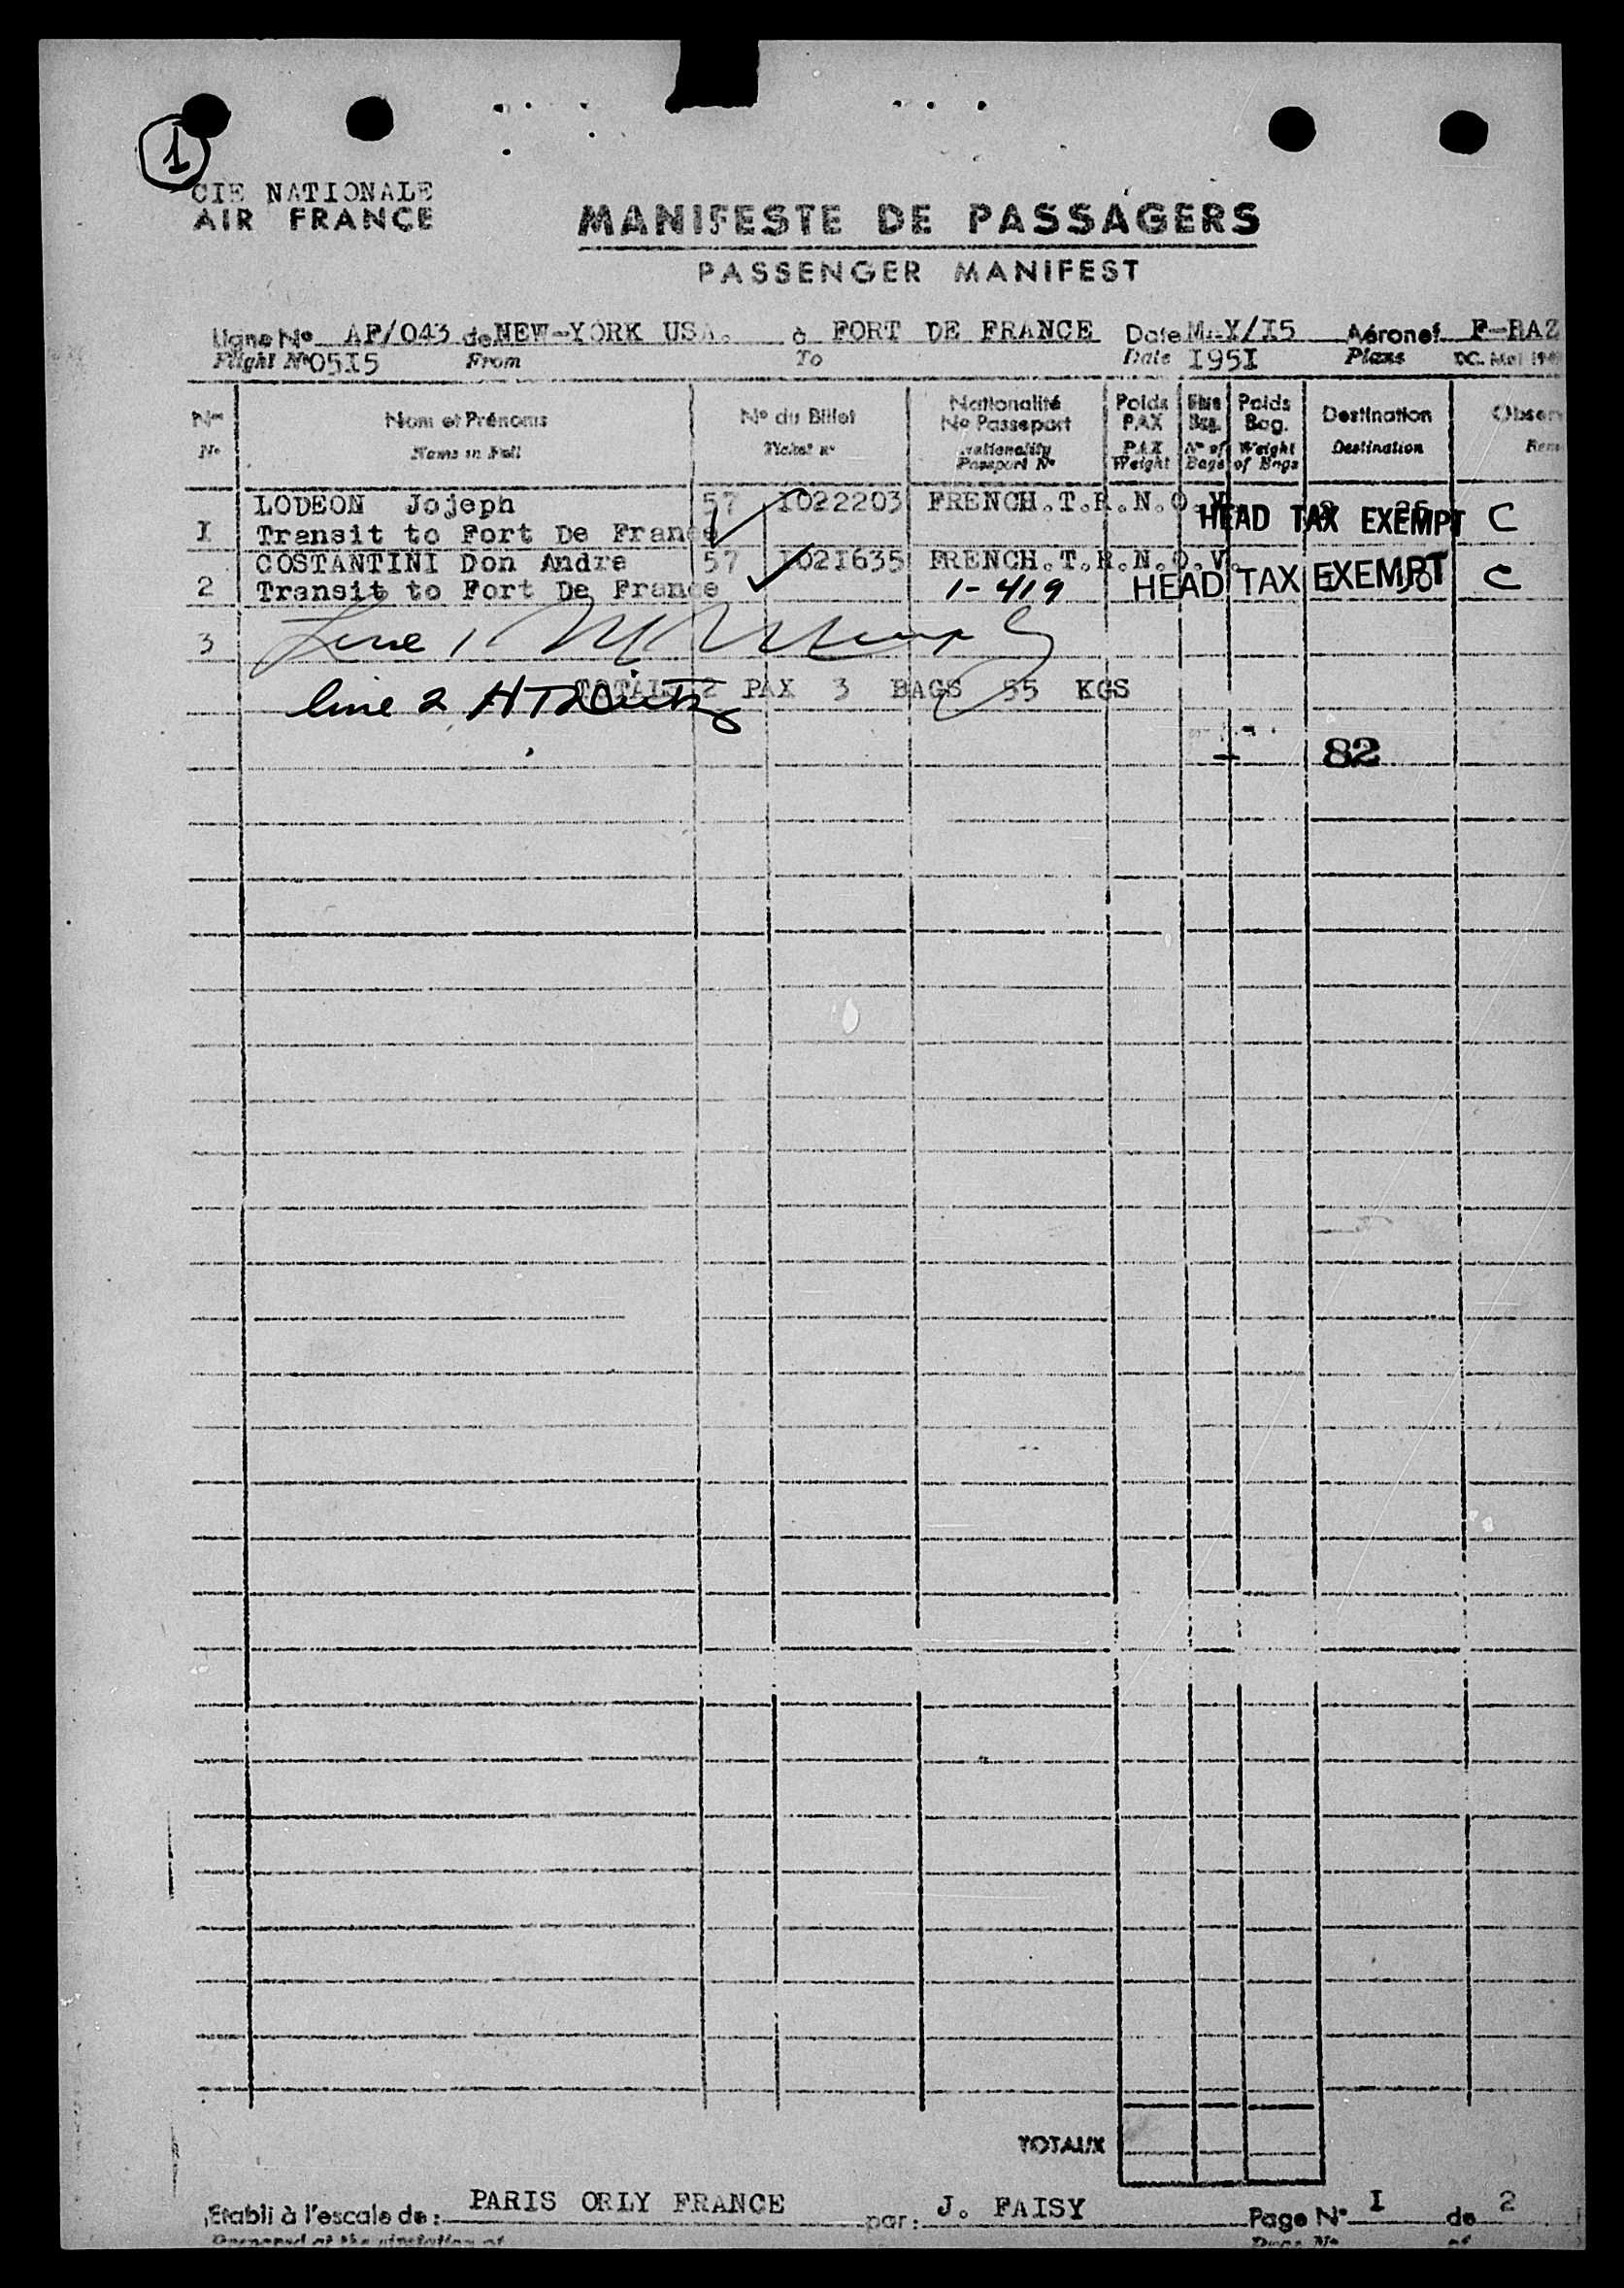 1
CIE NATIONALE
AIR FRANCE
MANIFESTE DE PASSAGERS
PASSENGER MANIFEST
Ligne No AF/043 de NEW-YORK USA. à FORT DE FRANCE Date MAY/I5 Aéronef F-BAZ
Flight No 05I5 From To Date I95I Plane
Nos Nom et Prénoms No du Billet Nationalité No Passeport Poids PAX Poids Bag. Destination Obser
No Name in Full Ticket No Nationality Passport No PAX Weight No of Bags Weight of Bags Destination Rem
LODEON Jojeph 57 I022203 FRENCH.T.R.N.O.V.
I Transit to Fort De France HEAD TAX EXEMPT C
COSTANTINI Don Andre 57 I02I635 FRENCH.T.R.N.O.V.
2 Transit to Fort De France 1-419 HEAD TAX EXEMPT C
3 Line 1
TOTAL 2 PAX 3 BAGS 55 KGS
line 2
82
TOTAUX
Etabli à l'escale de: PARIS ORLY FRANCE par: J. FAISY Page No I de 2
Prepared at the of